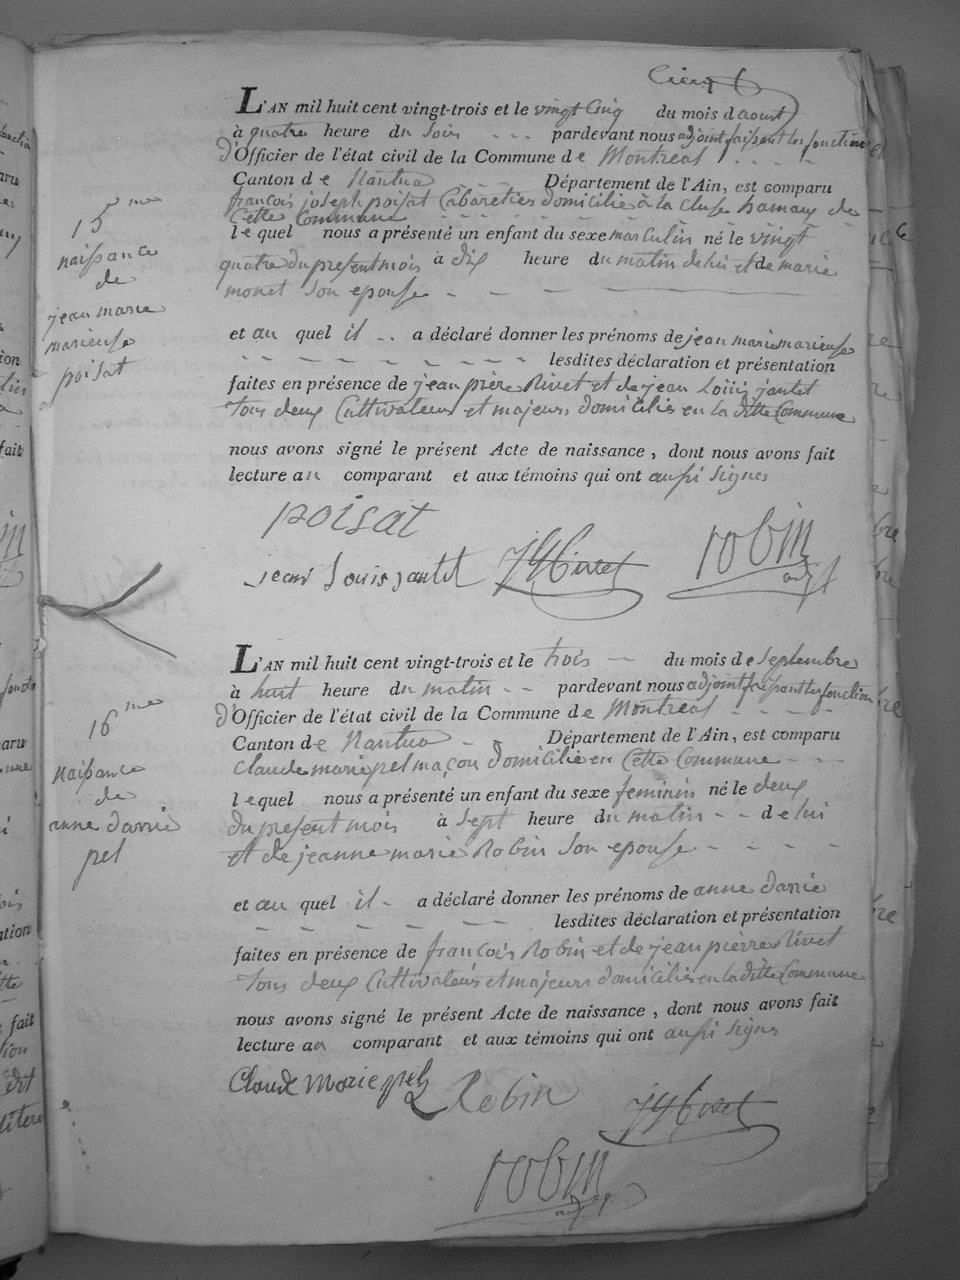 L'AN mil huit cent vingt-trois et le vingt Cinq du mois d'aoust
à quatre heure du soir pardevant nous adjoint faisant les fonction
d'Officier de l'état civil de la Commune de Montreal
Canton de Nantua Département de l'Ain, est comparu
françois joseph poisat Cabaretier domicilié à la Cluse hamaux de
Cette Commune
lequel nous a présenté un enfant du sexe masculin né le vingt
quatre du present mois à dix heure du matin de lui et de marie
monet son epouse
et au quel il a déclaré donner les prénoms de jean marie marieuse
lesdites déclaration et présentation
faites en présence de jean pierre Rivet et de jean Louis jantet
tous deux Cultivateurs et majeurs domiciliés en la ditte Commune
nous avons signé le présent Acte de naissance, dont nous avons fait
lecture au comparant et aux témoins qui ont aussi signes
poisat
jean Louis jantet JP Rivet robin
adjt
15me
naissance
de
jean marie
marieuse
poisat
L'AN mil huit cent vingt-trois et le trois du mois de septembre
à huit heure du matin pardevant nous adjoint faisant les fonction
d'Officier de l'état civil de la Commune de Montreal
Canton de Nantua Département de l'Ain, est comparu
Claude marie pel maçon domicilié en Cette Commune
lequel nous a présenté un enfant du sexe feminin né le deux
du present mois à sept heure du matin de lui
et de jeanne marie Robin son epouse
et au quel il a déclaré donner les prénoms de anne darie
lesdites déclaration et présentation
faites en présence de françois Robin et de jean pierre Rivet
tous deux Cultivateurs et majeurs domiciliés en la ditte Commune
nous avons signé le présent Acte de naissance, dont nous avons fait
lecture au comparant et aux témoins qui ont aussi signes
Claude Marie pel Robin JP Rivet
robin
adjt
16me
naissance
de
anne darie
pel